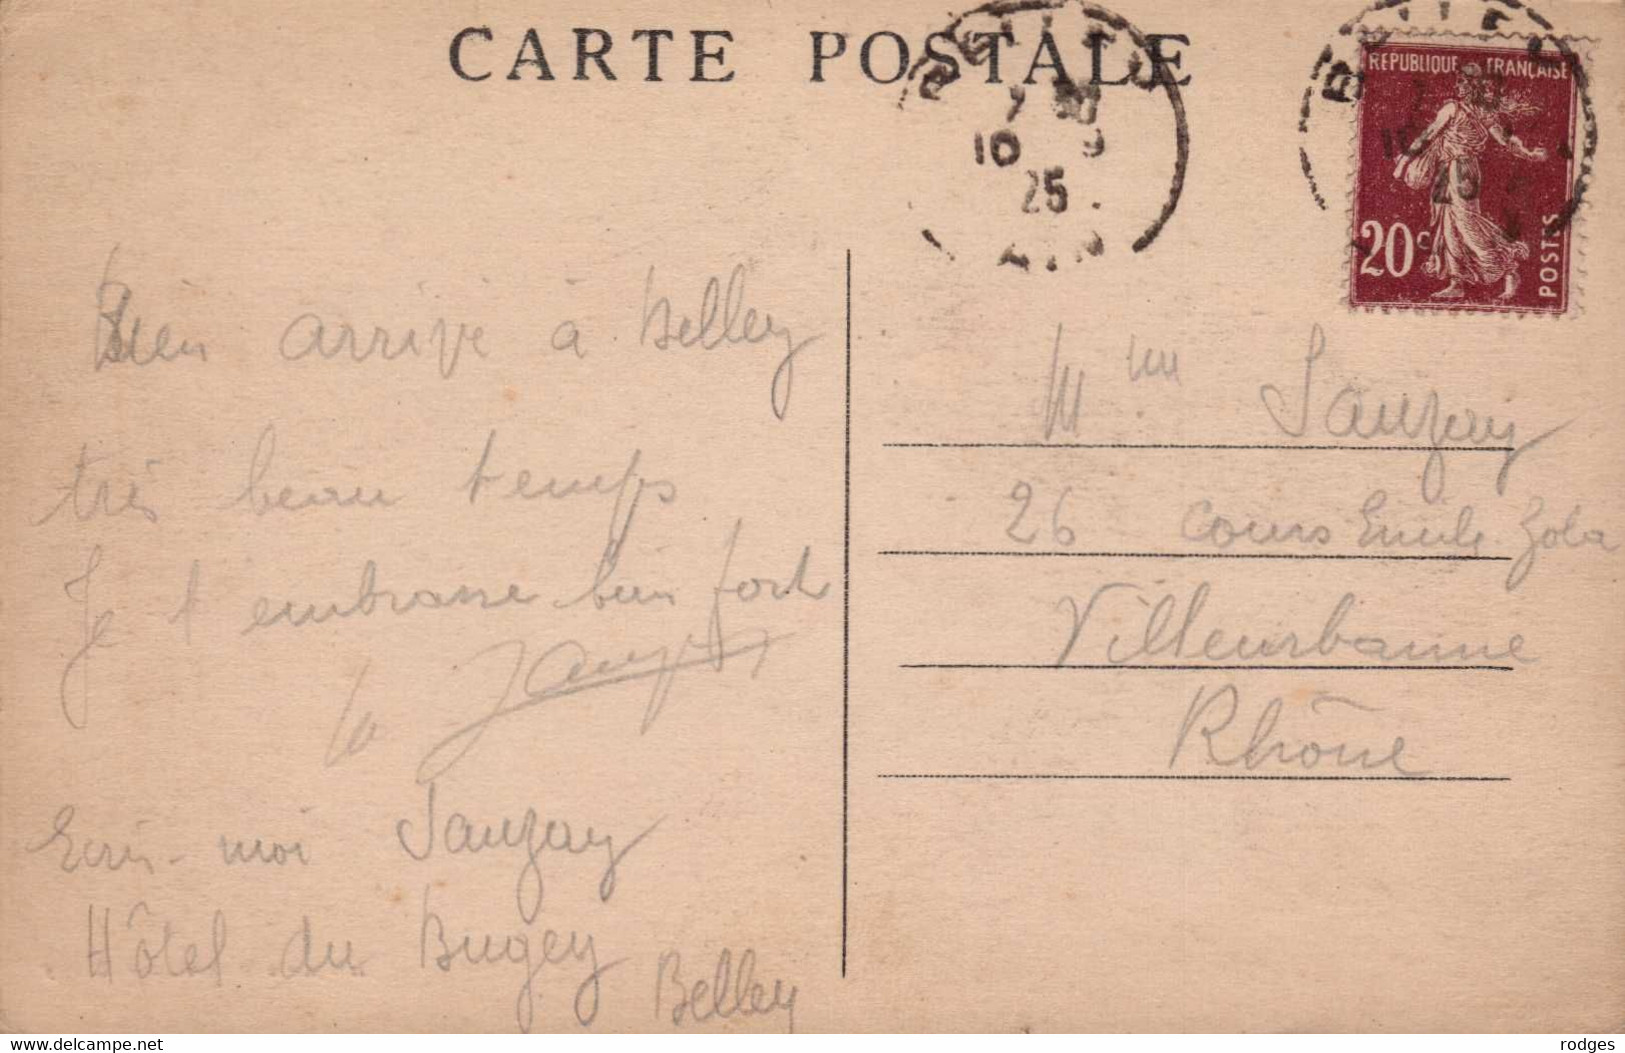 CARTE POSTALE
BELLEY
7 30
10 9
25
AIN
RÉPUBLIQUE FRANÇAISE
20c
POSTES
Bien arrivé à Belley
très beau temps
Je t'embrasse bien fort
Mme Sauzay
26 cours Emile Zola
Villeurbanne
Rhône
Ecris-moi Sauzay
Hôtel du Bugey
Belley
www.delcampe.net
rodges